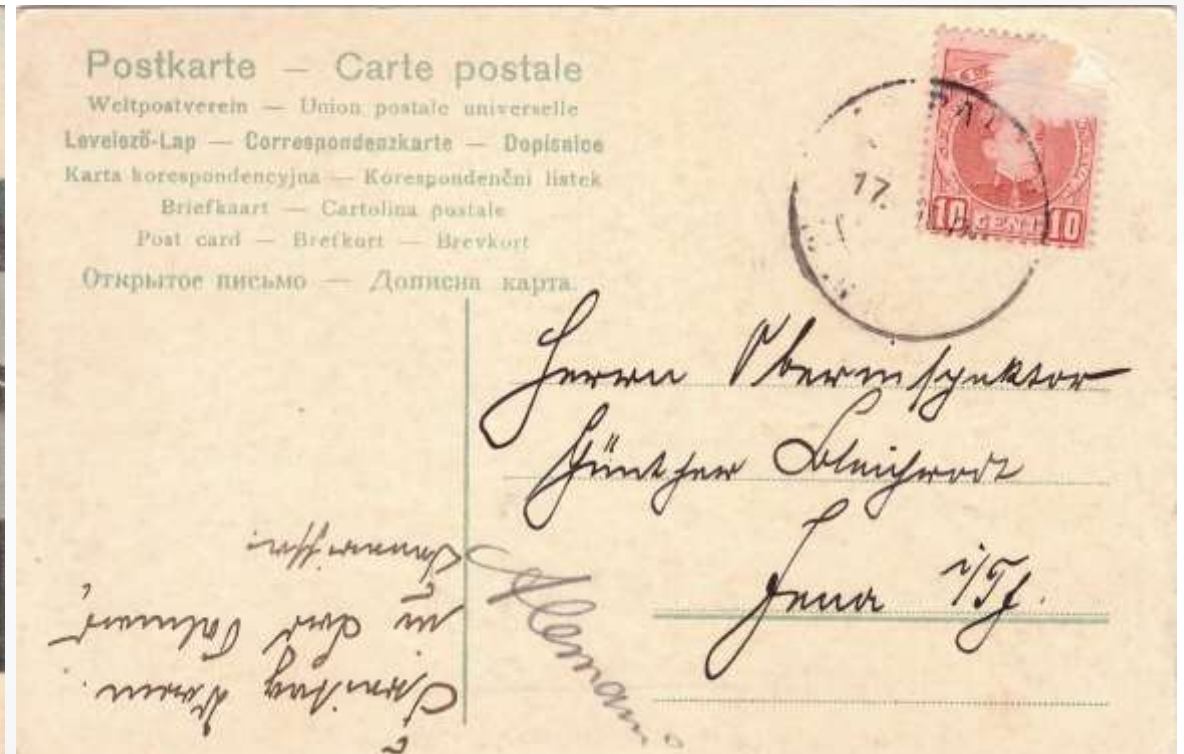 Postkarte — Carte postale
Weltpostverein — Union postale universelle
Levelező-Lap — Correspondenzkarte — Dopisnice
Karta korespondencyjna — Korespondenční listek
Briefkaart — Cartolina postale
Post card — Brefkort — Brevkort
Открытое письмо — Дописна карта.
17.
10 CENT 10
Herrn Oberinspektor
Günther Bleichrodt
Jena i/Th.
Alemania